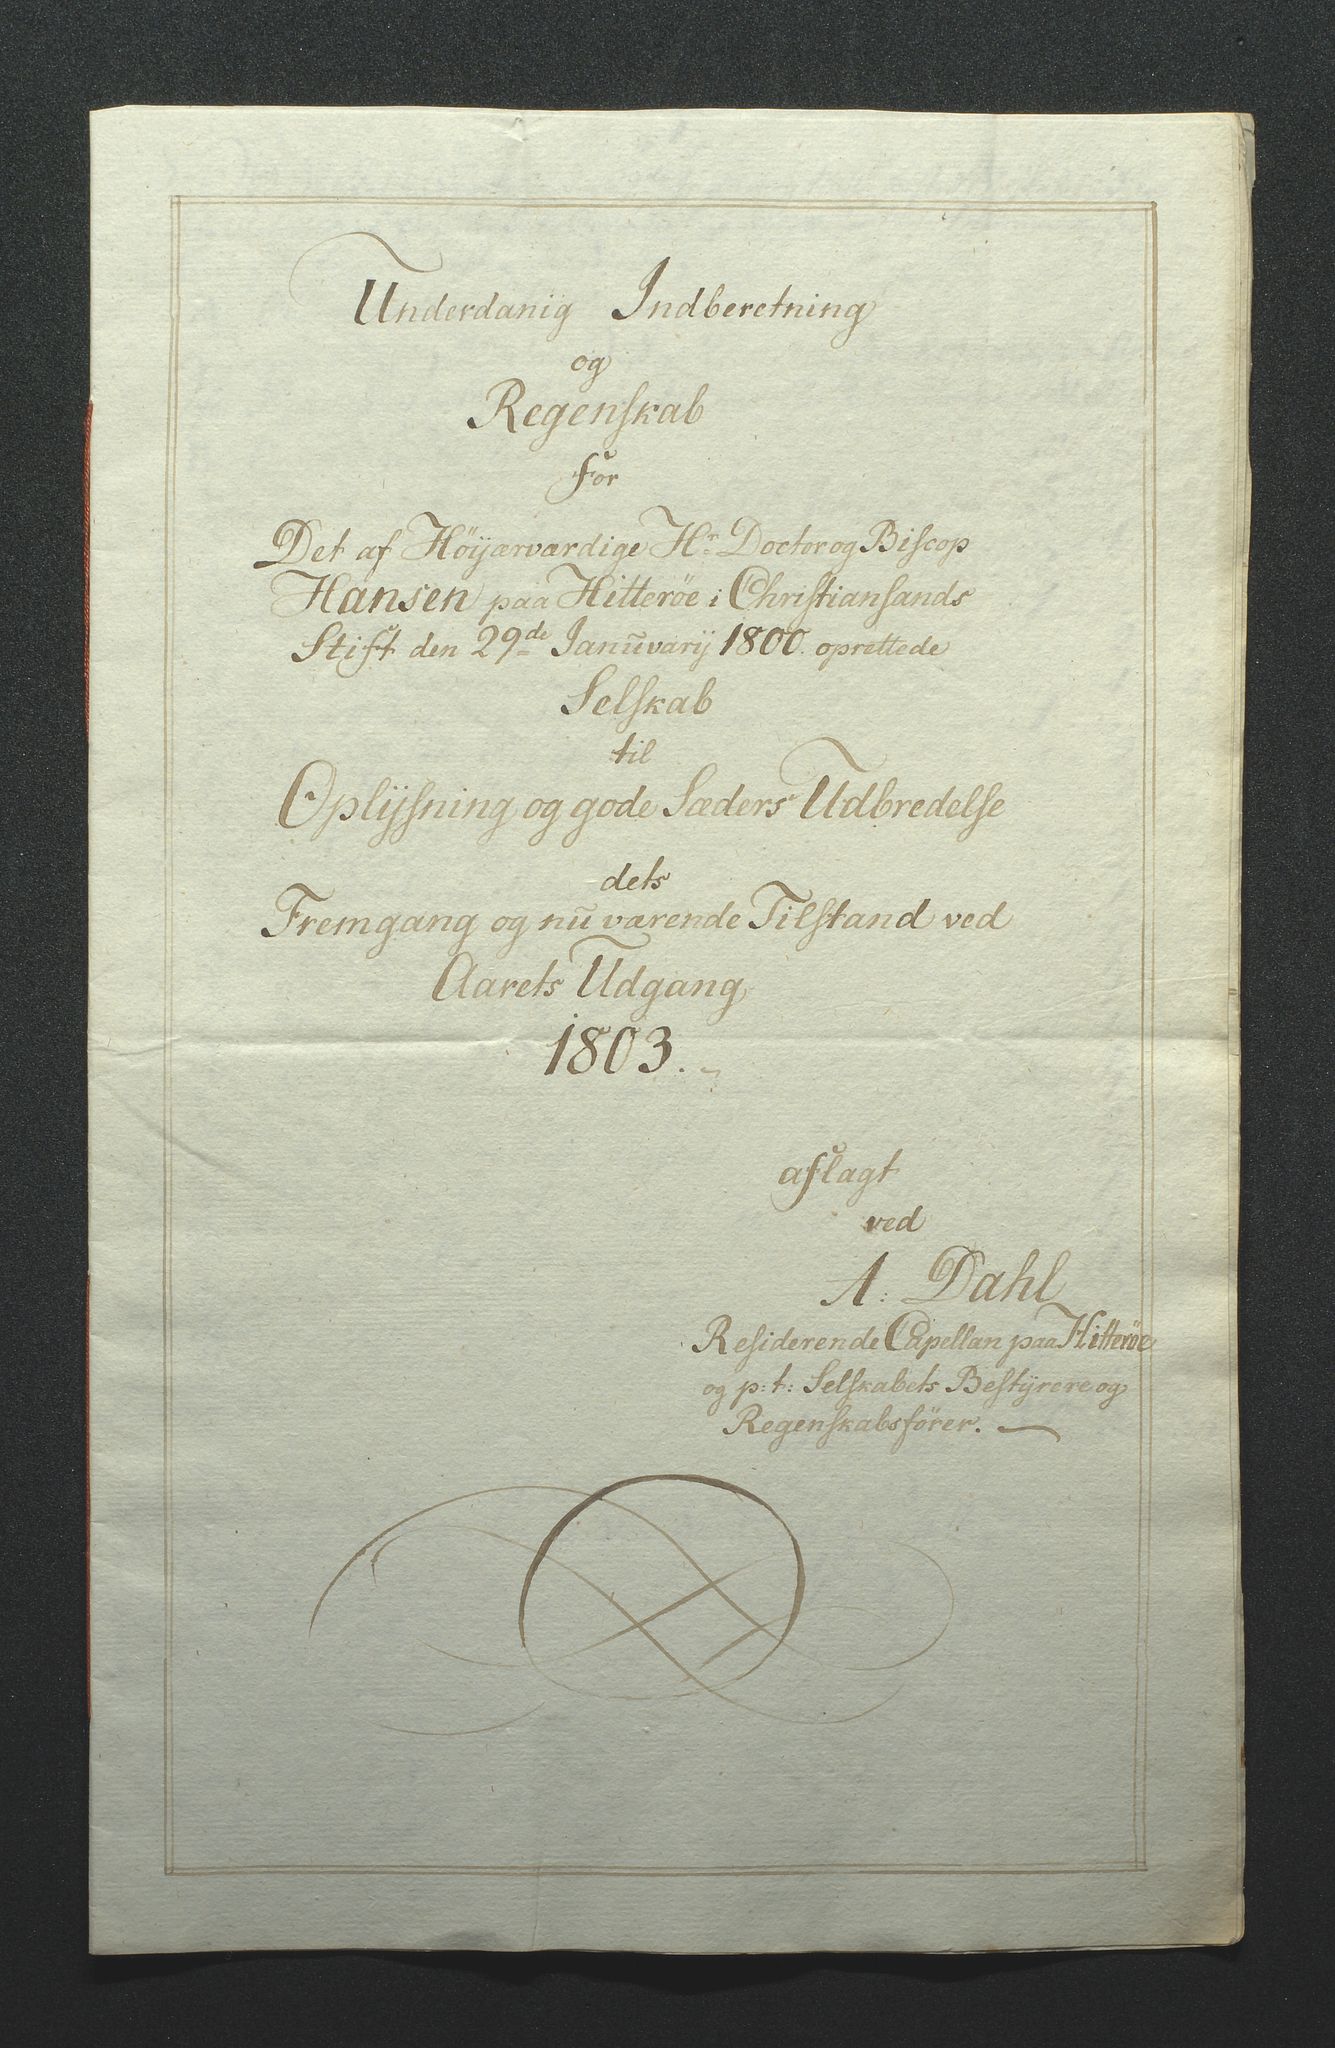 Underdanig Indberetning
og
Regenskab
for
Det af Höijærværdige Hr. Doctor og Biscop
Hansen paa Hitteröe i Christiansands
Stift den 29de Januvarij 1800. oprettede
Selskab
til
Oplijsning og gode Sæders Udbredelse
dets
Fremgang og nu værende Tilstand ved
Aarets Udgang
1803.
aflagt
ved
A: Dahl
Residerende Capellan paa Hitteröe
og p: t: Selskabets Bestÿrere og
Regenskabsförer.